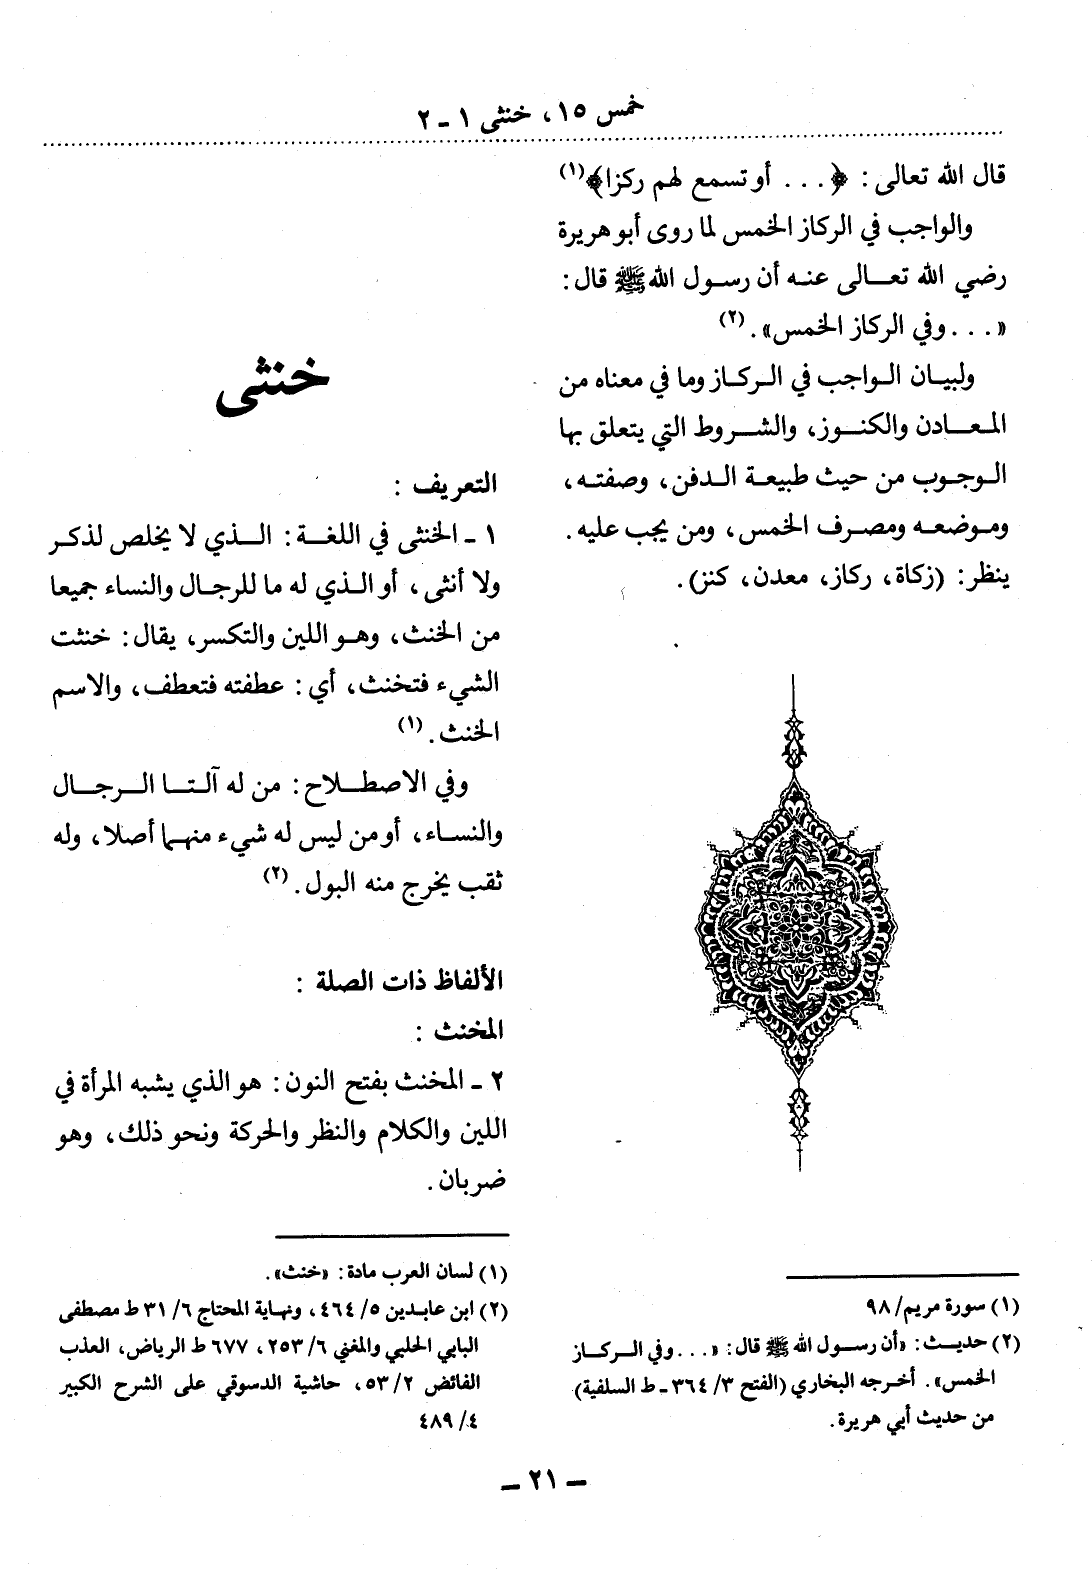 خمس ١٥، خنثى ١ - ٢
قال الله تعالى: ﴿... أو تسمع لهم ركزا﴾(١)
والواجب في الركاز الخمس لما روى أبو هريرة
رضي الله تعالى عنه أن رسول الله ﷺ قال:
«... وفي الركاز الخمس».(٢)
ولبيان الواجب في الركاز وما في معناه من
المعادن والكنوز، والشروط التي يتعلق بها
الوجوب من حيث طبيعة الدفن، وصفته،
وموضعه ومصرف الخمس، ومن يجب عليه.
ينظر: (زكاة، ركاز، معدن، كنز).
(١) سورة مريم/ ٩٨
(٢) حديث: «أن رسول الله ﷺ قال: «... وفي الركاز
الخمس». أخرجه البخاري (الفتح ٣/ ٣٦٤ - ط السلفية)
من حديث أبي هريرة.
خنثى
التعريف :
١ - الخنثى في اللغة: الذي لا يخلص لذكر
ولا أنثى، أو الذي له ما للرجال والنساء جميعا
من الخنث، وهو اللين والتكسر، يقال: خنثت
الشيء فتخنث، أي: عطفته فتعطف، والاسم
الخنث.(١)
وفي الاصطلاح: من له آلتا الرجال
والنساء، أو من ليس له شيء منهما أصلا، وله
ثقب يخرج منه البول.(٢)
الألفاظ ذات الصلة :
المخنث :
٢ - المخنث بفتح النون: هو الذي يشبه المرأة في
اللين والكلام والنظر والحركة ونحو ذلك، وهو
ضربان.
(١) لسان العرب مادة: «خنث».
(٢) ابن عابدين ٥/ ٤٦٤، ونهاية المحتاج ٦/ ٣١ ط مصطفى
البابي الحلبي والمغني ٦/ ٢٥٣، ٦٧٧ ط الرياض، العذب
الفائض ٢/ ٥٣، حاشية الدسوقي على الشرح الكبير
٤/ ٤٨٩
- ٢١ -